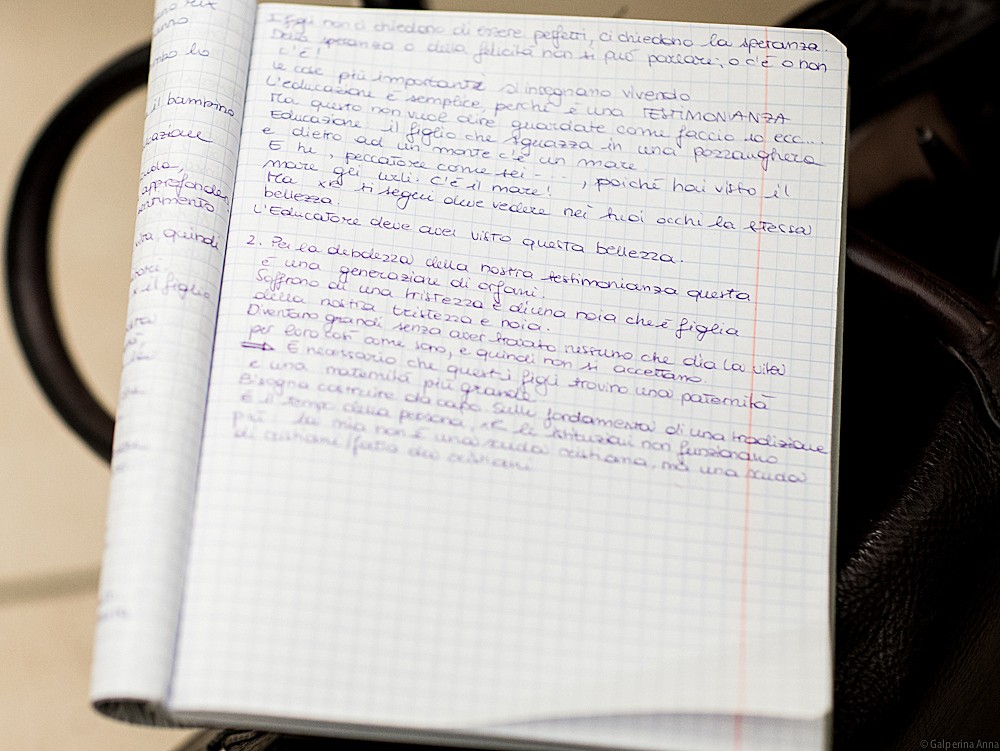 o lo
il bambino
uazione
approfonden
vita, quindi
il figlio
I figli non ci chiedono di essere perfetti, ci chiedono la speranza.
Della speranza o della felicità non si può parlare, o c'è o non
c'è!
le cose più importanti si insegnano vivendo
L'educazione è semplice, perché è una TESTIMONIANZA
Ma questo non vuol dire guardate come faccio io ecc...
Educazione il figlio che sguazza in una pozzanghera
e dietro ad un monte c'è un mare
E tu, peccatore come sei ..., poiché hai visto il
mare gli urli: c'è il mare!
Ma xké ti segua deve vedere nei tuoi occhi la stessa
bellezza.
L'Educatore deve aver visto questa bellezza.
2. Per la debolezza della nostra testimonianza questa
è una generazione di orfani.
Soffrono di una tristezza e di una noia che è figlia
della nostra tristezza e noia.
Diventano grandi senza aver trovato nessuno che dia la vita
per loro così come sono, e quindi non si accettano.
⇒ È necessario che questi figli trovino una paternità
e una maternità più grande.
Bisogna costruire da capo sulle fondamenta di una tradizione
È il tempo della persona, xké le istituzioni non funzionano
più. La mia non è una scuola cristiana, ma una scuola
di cristiani/fatta da cristiani
© Galperina Anna